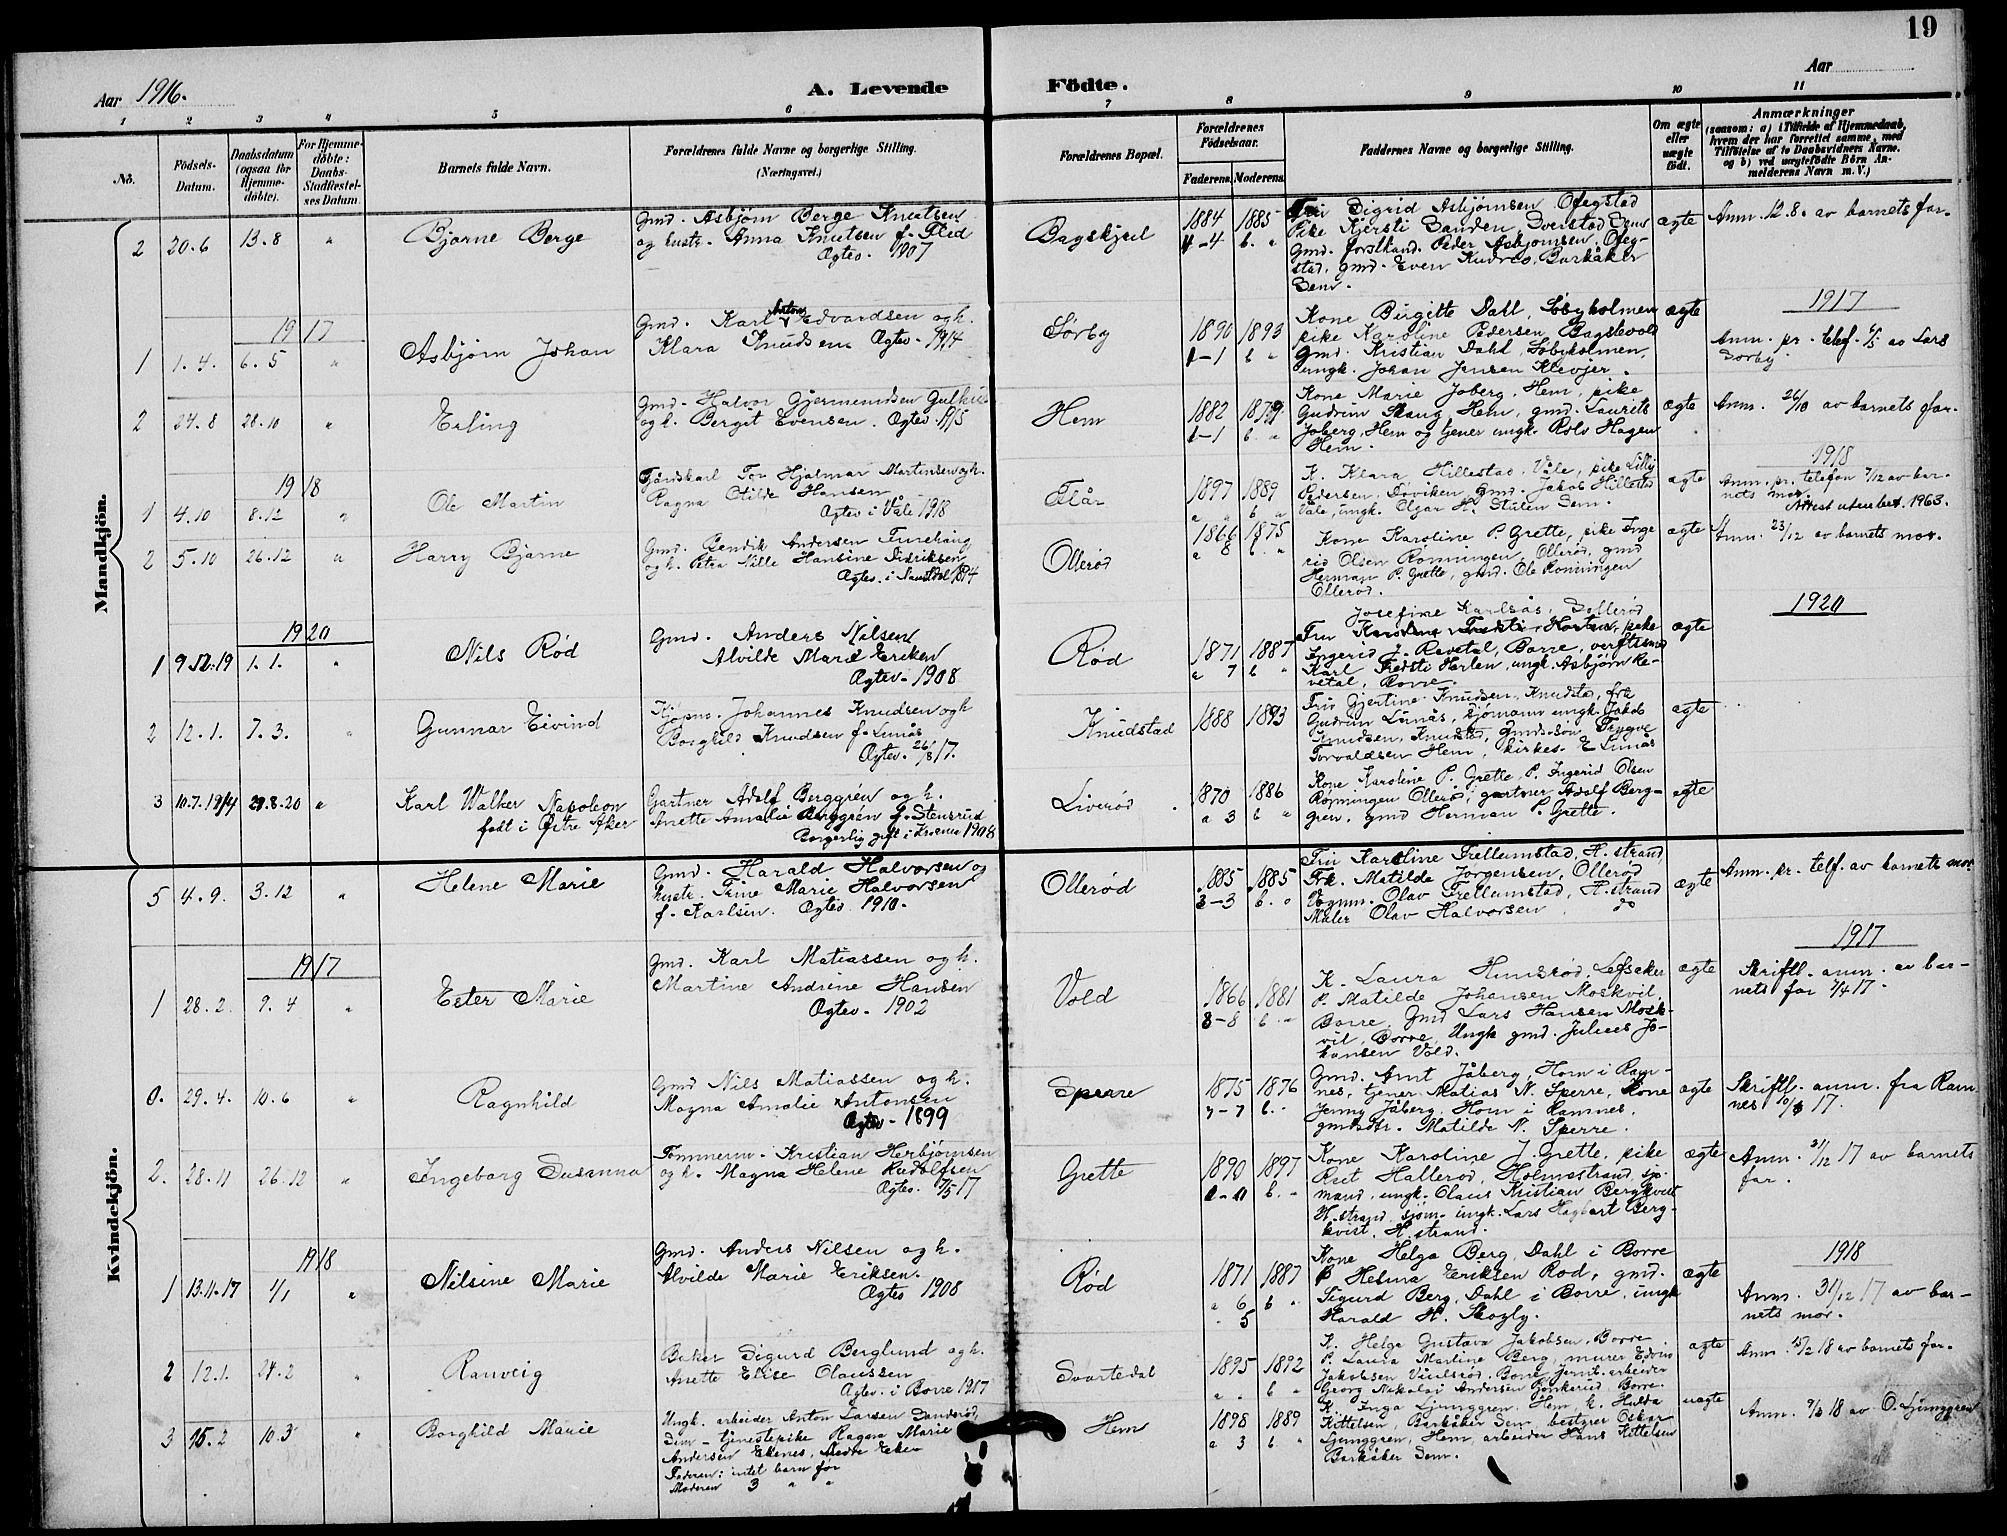 19
Aar 1916.
A. Levende Födte.
Aar
1 2 3 4 5 6 7 8 9 10 11
No.
Födsels-Datum.
Daabsdatum (ogsaa for Hjemme-döbte).
For Hjemme-döbte: Daabs-Stadfæstel-ses Datum.
Barnets fulde Navn.
Forældrenes fulde Navne og borgerlige Stilling. (Næringsvei.)
Forældrenes Bopæl.
Forældrenes Födselsaar.
Faderens. Moderens.
Faddernes Navne og borgerlige Stilling.
Om ægte eller uægte födt.
Anmærkninger
(saasom: a) i Tilfælde af Hjemmedaab, hvem der har forrettet samme, med Tilföielse af to Daabsvidners Navne. og b) ved uægtefödte Börn An-melderens Navn m. V.)
Mandkjön.
2 20.6 13.8 " Bjarne Berge
Gmd. Asbjørn Berge Knutsen
og hustr. Anna Knutsen f. Flid
Ægtev. 1907
Bagskjæl
1884 1885
4-4 b. "
Fru Sigrid Asbjørnsen
Pike Kjersti Sanden,
Gmd. forstkand. Peder Asbjørnsen,
stad, gmd. Even Barkåker
Sem.
ægte
Anm. 12.8. av barnets far.
1917
1 1.4. 6.5 " Asbjørn Johan
Gmd. Karl Anton Edvardsen og h.
Klara Knudsen Ægtev. 1914
Sørby
1890 1893
1-1 b "
Kone Birgitte Dahl, Løbyholmen
pike Karoline Pedersen Bagslevold
Gmd. Kristian Dahl, Løbyholmen,
ungk. Johan Jensen Klevjer.
ægte
1917
Anm. pr. telef. 6/5 av Lars
Sørby.
2 24.8 28.10 " Erling
Gmd. Halvor Gjermundsen
og h. Bergit Evensen. Ægtev. 1915
Hem
1882 1879
1-1 b "
Kone Marie Joberg, Hem, pike
Gudrun Skaug, Hem, gmd. Laurits
Joberg, Hem og tjener ungk. Rolv Hagen
Hem.
ægte
Anm. 26/10 av barnets far.
1918
1 4.10 8.12 " Ole Martin
Tor Hjalmar Martinsen og h.
Ragna Otilde Hansen
Ægtev i Våle 1918
Flår
1897 1889
" " b "
K. Klara Hillestad, Våle, pike Lilly
Pedersen, Døviken, gmd. Jakob Hillestad
Våle, ungk. Elgar H. Stulen Sem.
ægte
1918
Anm. pr. telefon 7/12 av bar-
nets mor.
Attest utenbet. 1963.
2 5.10 26.12 " Harry Bjarne
Gmd. Bendik Andersen
og h. Petra Nille Hansine Didriksen
Ægtev. i 1894
Ollerød
1866 1875
" 8 b. "
Kone Karoline P. Grette, pike Inge
rid Olsen Rønningen, Ollerød, gmd
Herman P. Grette, gmd. Ole Rønningen
Ollerød.
ægte
Anm. 23/12 av barnets mor.
1920
1 9.12.19 1.1. " Nils Rød
Gmd. Anders Nilsen
Alvilde Marie Eriksen
Ægtev. 1908
Rød
1871 1887
" 7 b "
Josefine Karlsås, Sollerød
Fru pike
Ingerid J. Revetal, Borre,
Karl ungk. Asbjørn Re-
vetal, Borre.
ægte
1920
2 12.1. 7.3. " Gunnar Eivind
Johannes Knudsen og h
Borghild Knudsen f. Linås
Ægtev. 26/8 17.
Knudstad
1888 1893
Fru Gjertine Knudsen, Knudstad, frk
Gudrun Linås, sjømann ungk. Jakob
Knudsen, Knudstad, gmds-søn Trygve
Torvaldsen Hem, kirkes. E Linås
ægte
3 10.7.1914 29.8.20 " Karl Walker Napoleon
født i Østre Aker
Gartner Adolf Berggrén og h.
Anette Amalie Berggrén f. Stensrud
Borgerlig gift i Kr.ania 1908
Liverød
1870 1886
" 3 b "
Kone Karoline P. Grette, P. Ingerid Olsen
Rønningen Ollerød, gartner Adolf Berg-
gren, gmd Herman P. Grette.
ægte
Kvindekjön.
5 4.9. 3.12 " Helene Marie
Gmd. Harald Halvorsen og
hustr. Trine Marie Halvorsen
f. Karlsen. Ægtev. 1910.
Ollerød
1885 1885
3-3 b. "
Fru Karoline Trellumstad, H.strand
Frk. Matilde Jørgensen, Ollerød
Vognm. Olav Trellumstad, H.strand
Maler Olav Halvorsen do
ægte
Anm. pr. telf. av barnets mor
1917
1 28.2. 9.4 " Ester Marie
Gmd. Karl Matiassen og h.
Martine Andrine Hansen
Ægtev. 1902
Vold
1866 1881
8-8 b. "
K. Laura Himsrød, Lefsaker
P. Matilde Johansen Moskvil,
Borre, Gmd Lars Hansen Mosk-
vil, Borre, Ungk gmd. Julius Jo-
hansen Vold.
ægte
1917
Skriftl. anm. av bar-
nets far 7/4 17.
0. 29.4. 10.6 " Ragnhild
Gmd Nils Matiassen og h.
Magna Amalie Antonsen
Ægtev. 1899
Sperre
1875 1876
7-7 b. "
Gmd. Arnt Jåberg, Horn i Ram-
nes, tjener Matias N. Sperre, Kone
Jenny Jåberg, Horn i Ramnes,
gmdsdtr. Matilde N. Sperre.
ægte
Skriftl. anm. fra Ram
nes 17.
2. 28.11 26.12 " Ingeborg Susanna
Tømmerm. Kristian Herbjørnsen
og h. Magna Helene Rudolfsen
Ægtev. 17
Grette
1890 1897
b. "
Kone Karoline J. Grette, pike
Rut Hallerød, Holmestrand, sjø-
mand, ungk. Olaus Kristian Bergkvist
H.strand, sjøm. ungk. Lars Hagbart Berg-
kvist, H.strand.
ægte
Anm. 21/12 17 av barnets
far.
1918
1 13.11.17 1/1 " Nilsine Marie
Gmd. Anders Nilsen og h.
Alvilde Marie Eriksen.
Ægtev 1908
Rød
1871 1887
" 6 b "
" 5
Kone Helga Berg, Dahl i Borre
P Helma Eriksen Rød, gmd.
Sigurd Berg, Dahl i Borre, ungk
Harald H. Skogly.
ægte
1918
Anm. 31/12 17 av bar-
nets mor.
2 12.1. 24.2 " Ranveig
Baker Sigurd Berglund og h.
Anette Elise Olaussen
Ægtev. i Borre 1917
Svartedal
1895 1892
" " b "
K. Helga Gustava Jakobsen, Borre
P. Laura Martine Berg, murer Edvin
Jakobsen Borre, jernb. arbeider
Georg Nikolai Andersen Borre.
ægte
Anm. /2 18 av barnets far.
3 15.2 10.3 " Borghild Marie
Ungk. arbeider Anton Larsen Sanderød,
Sem - tjenestepike Ragna Marie
Andersen Ekenes, Nedre Eker
Faderen: intet barn før
Moderen 3 " "
Hem
1898 1889
" 3 b "
K. Inga Ljunggren, Hem, k. Hulda
Kittelsen, Barkåker Sem, bestyrer Oskar
Ljunggren, Hem, arbeider Hans Kittelsen
Barkåker Sem.
uægte
Anm. 18 av O. Ljunggren